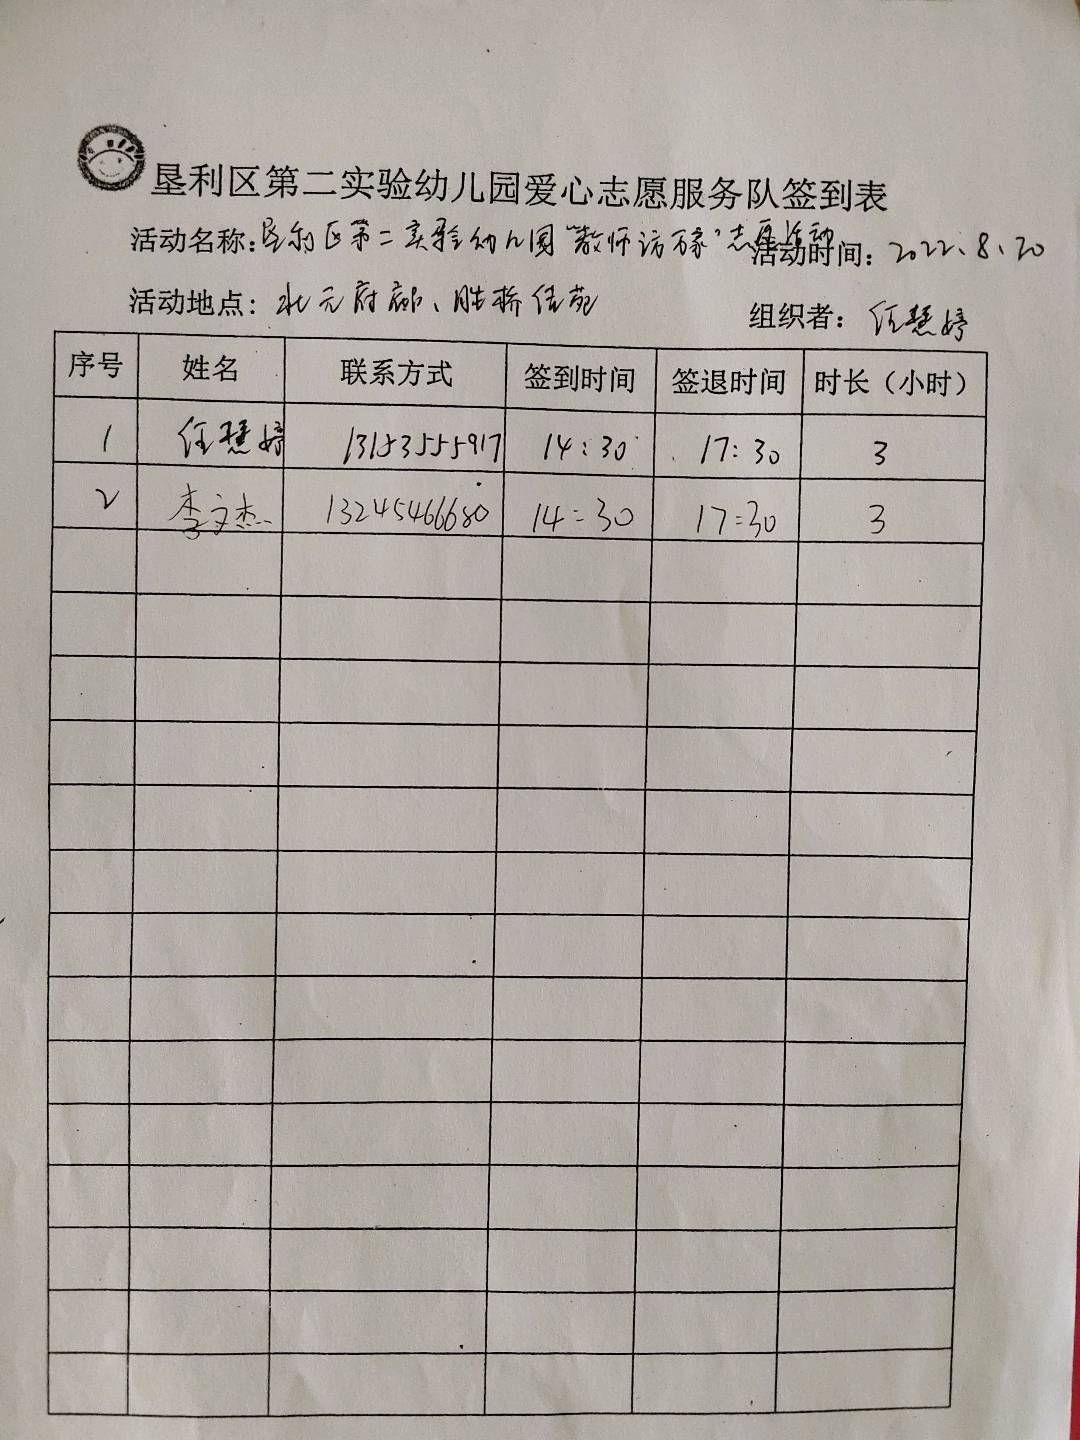 垦利区第二实验幼儿园爱心志愿服务队签到表
活动名称:垦利区第二实验幼儿园“教师访万家”志愿活动 活动时间:2022.8.20
活动地点: 府邸、胜桥佳苑 组织者: 任慧婷
序号 姓名 联系方式 签到时间 签退时间 时长（小时）
1 任慧婷 13153555917 14:30 17:30 3
2 李文杰 13245466680 14:30 17:30 3